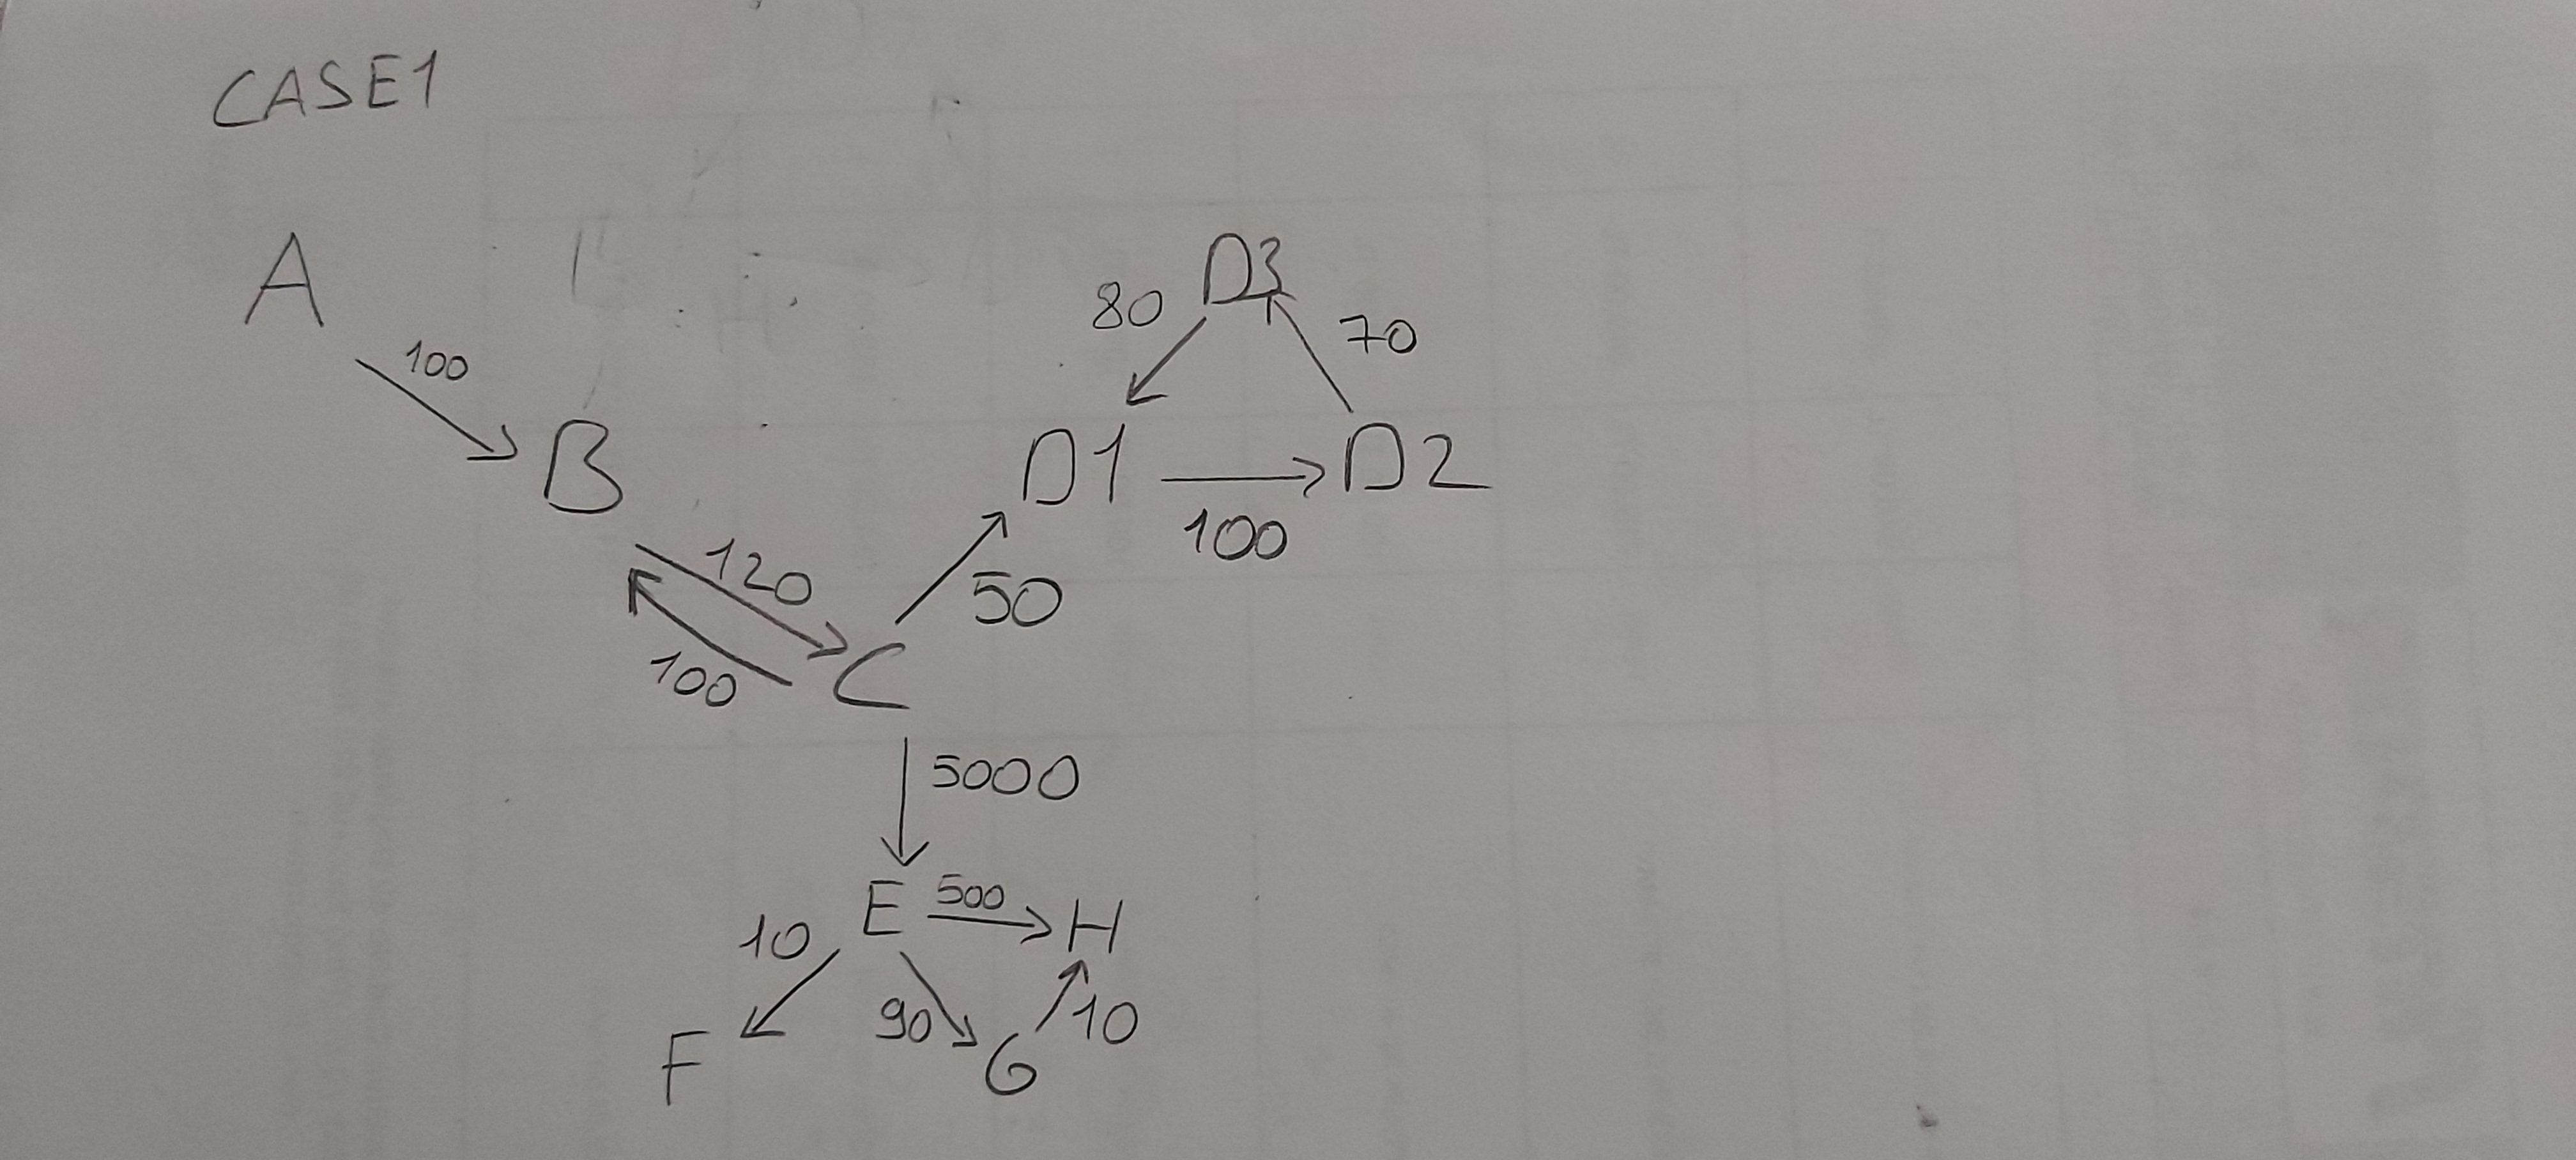 CASE1
A
100
B
120
100
C
50
D1
80
D3
70
100
D2
5000
E
500
H
10
F
90
G
10